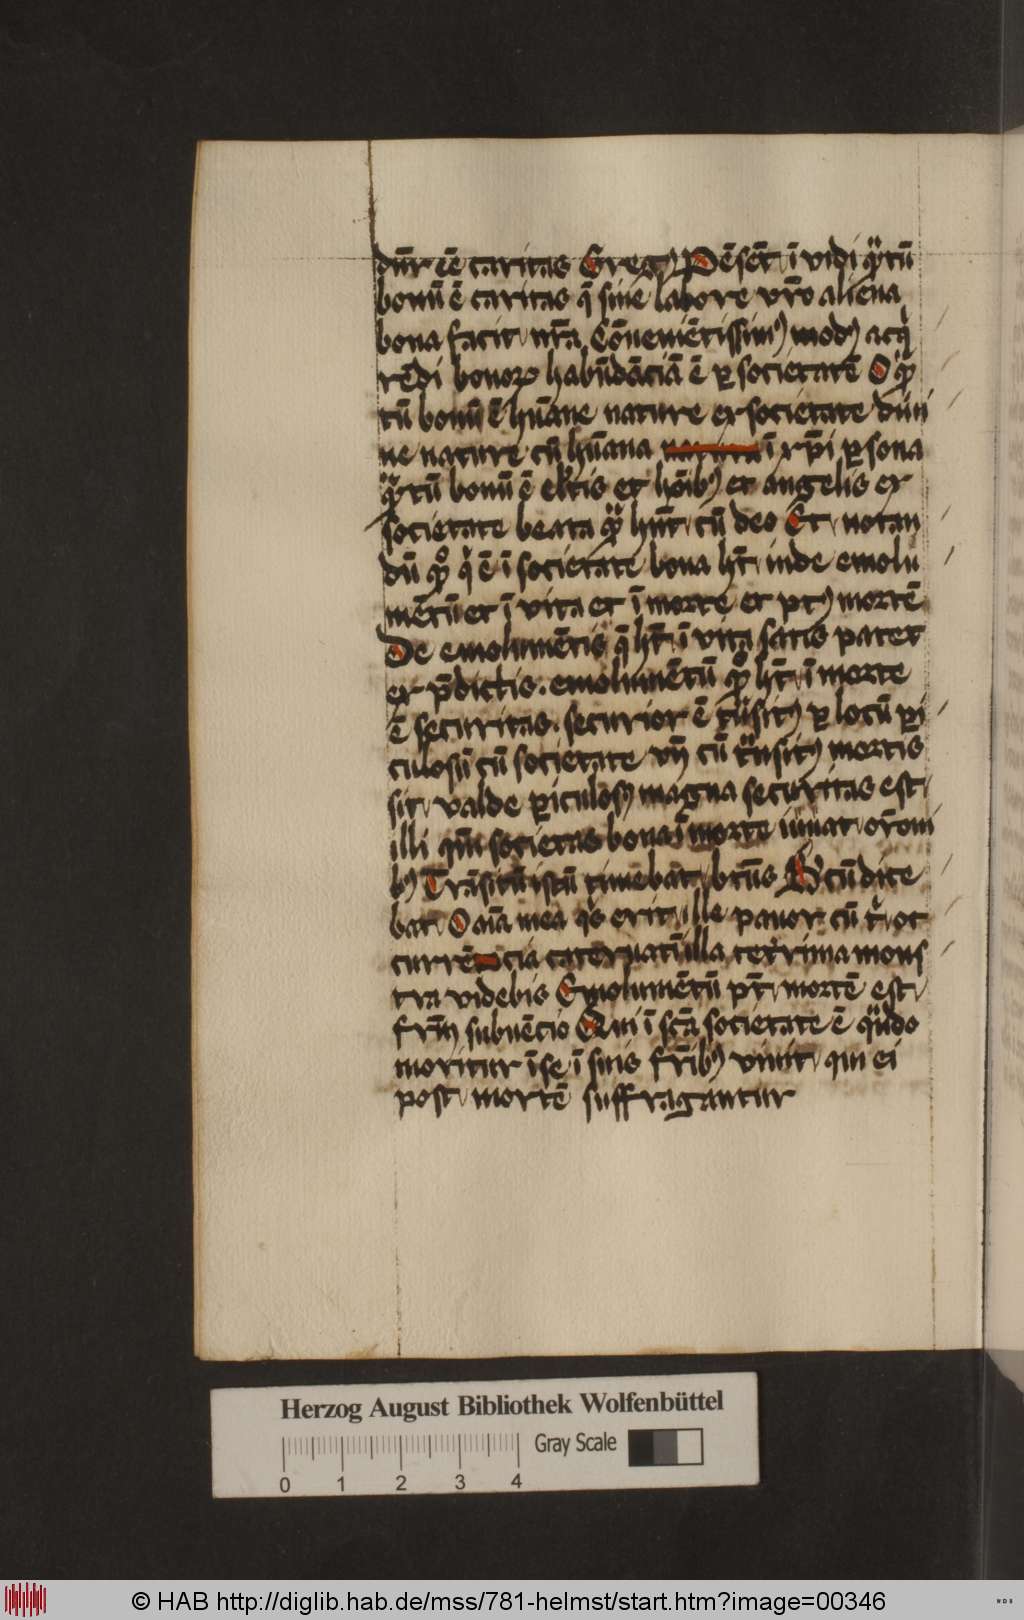 dūr ēē caritas Gregꝰ Pēsēt ī vidi qͣtū
bonū ē caritas q̄ sine labore vr̄o aliena
bona facit nr̄a Cōveniētissimꝰ modꝰ acqͥ
rēdi bonoꝝ habūdāciā ē ꝑ societatē O qͣ
tū bonū ē hūane nature ex societate diui
ne nature cū hūana ī xp̄i ꝑsona
qͣtū bonū ē el'tis et hōibꝰ et angelis ex
societate beata qͣ hn̄t cū deo Et notan
dū qͦ qͥ ē ī societate bona hꝫ inde emolu
mētū et ī vita et ī morte et ptꝰ mortē
De emolumētis q̄ hꝫ ī vita satis patet
ex p̄dictis . emolumētū qͦ hꝫ ī morte
ē securitas . securior ē tͣsitꝰ ꝑ locū ꝑi
culosū cū societate vn̄ cū tͣnsitꝰ mortis
sit valde ꝑiculosꝰ magna securitas est
illi qm̄ societas bona ī morte iuuat or̄oni
bꝰ Trāsitū istū timebat br̄us cū dice
bat O aīa mea qͥs erit ille pauor cū tͥ oc
currēcia cateruatī illa teterrima mons
tra videbis Emolumētū pꝰt mortē est
fr̄m subuēcio Qui ī scā societate ē qͣndo
moritur īse ī suis fr̄ibꝰ viuit qui ei
post mortē suffragantur
Herzog August Bibliothek Wolfenbüttel
Gray Scale
0 1 2 3 4
© HAB http://diglib.hab.de/mss/781-helmst/start.htm?image=00346